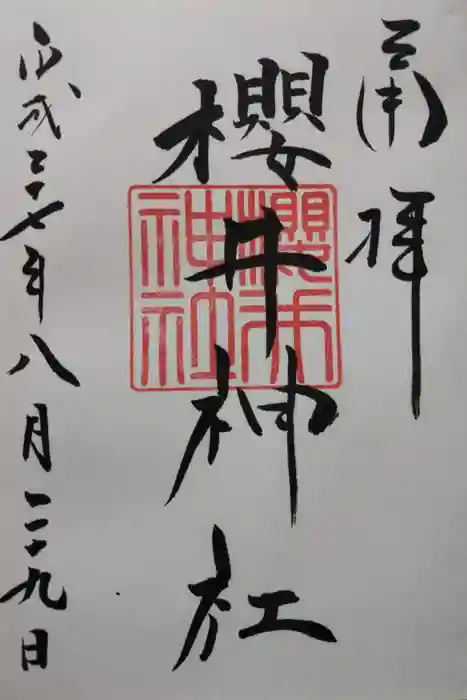 奉拝
櫻井神社
櫻井
神社
平成二十七年八月二十九日